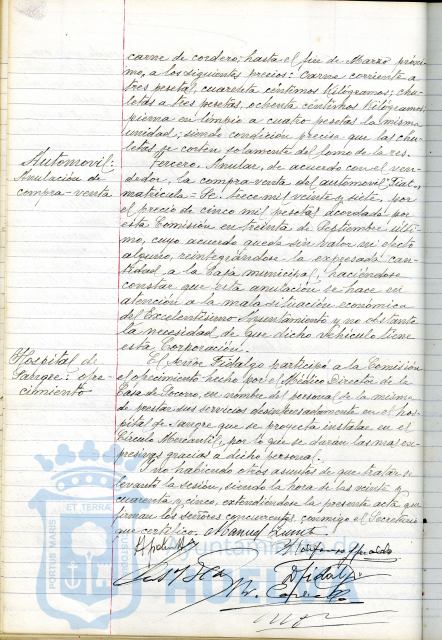 carne de cordero, hasta el fin de Marzo próxi-
mo, a los siguientes precios: Carne corriente a
tres pesetas, cuarenta céntimos kilógramos; chu-
letas a tres pesetas, ochenta céntimos kilógramos;
pierna en limpio a cuatro pesetas la misma
unidad; siendo condición precisa que las chu-
letas se corten solamente del lomo de la res.
Automovil:
Anulación de
compra-venta
Tercero. Anular, de acuerdo con el ven-
dedor, la compra-venta del automovil "Fiat",
matrícula = Se. trece mil veinte y siete, por
el precio de cinco mil pesetas acordada por
esta Comisión en treinta de Septiembre últi-
mo, cuyo acuerdo queda sin valor ni efecto
alguno, reintegrándose la expresada can-
tidad a la Casa municipal, haciéndose
constar que esta anulación se hace en
atención a la mala situación económica
del Excelentísimo Ayuntamiento y no obstante
la necesidad de que dicho vehículo tiene
esta Corporación.
Hospital de
Sangre: ofre-
cimiento
El señor Fidalgo participó a la Comisión
el ofrecimiento hecho por el Médico Director de la
Casa de Socorro, en nombre del personal de la misma
de prestar sus servicios desinteresadamente en el hos-
pital de sangre que se proyecta instalar en el
Círculo Mercantil, por lo que se darán las más ex-
presivas gracias a dicho personal.
Y no habiendo otros asuntos de que tratar se
levantó la sesión, siendo la hora de las veinte y
cuarenta y cinco, extendiéndose la presente acta que
firman los señores concurrentes, conmigo el Secretario
que certifico.
D Fidalgo
PORTUS MARIS
ET TERRÆ
CUSTODIA
Ayuntamiento de
HUELVA